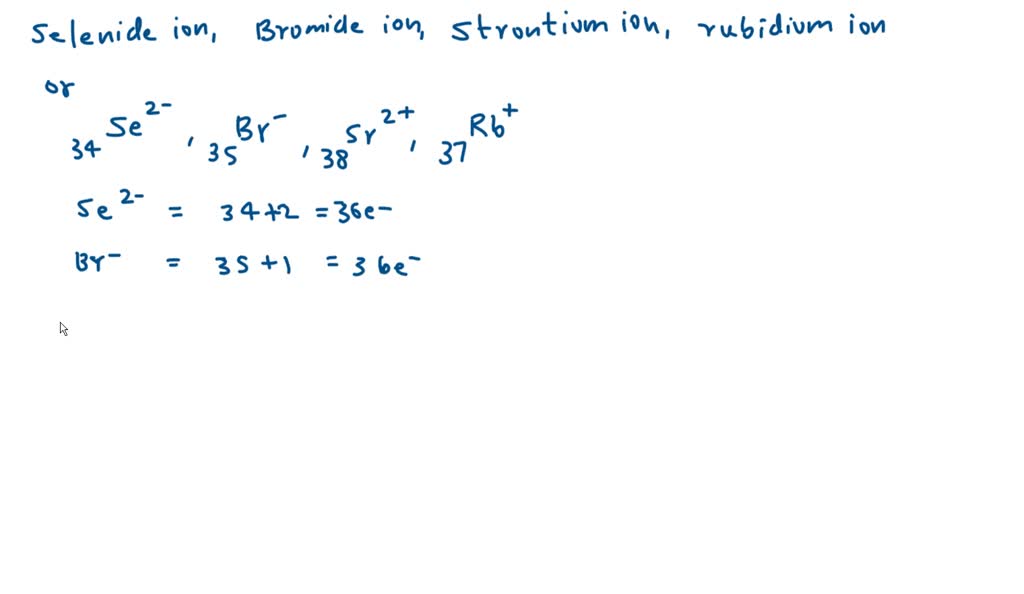 Selenide ion, Bromide ion, Strontium ion, rubidium ion
or
₃₄Se²⁻, ₃₅Br⁻, ₃₈Sr²⁺, ₃₇Rb⁺
Se²⁻ = 34+2 = 36e⁻
Br⁻ = 35+1 = 36e⁻